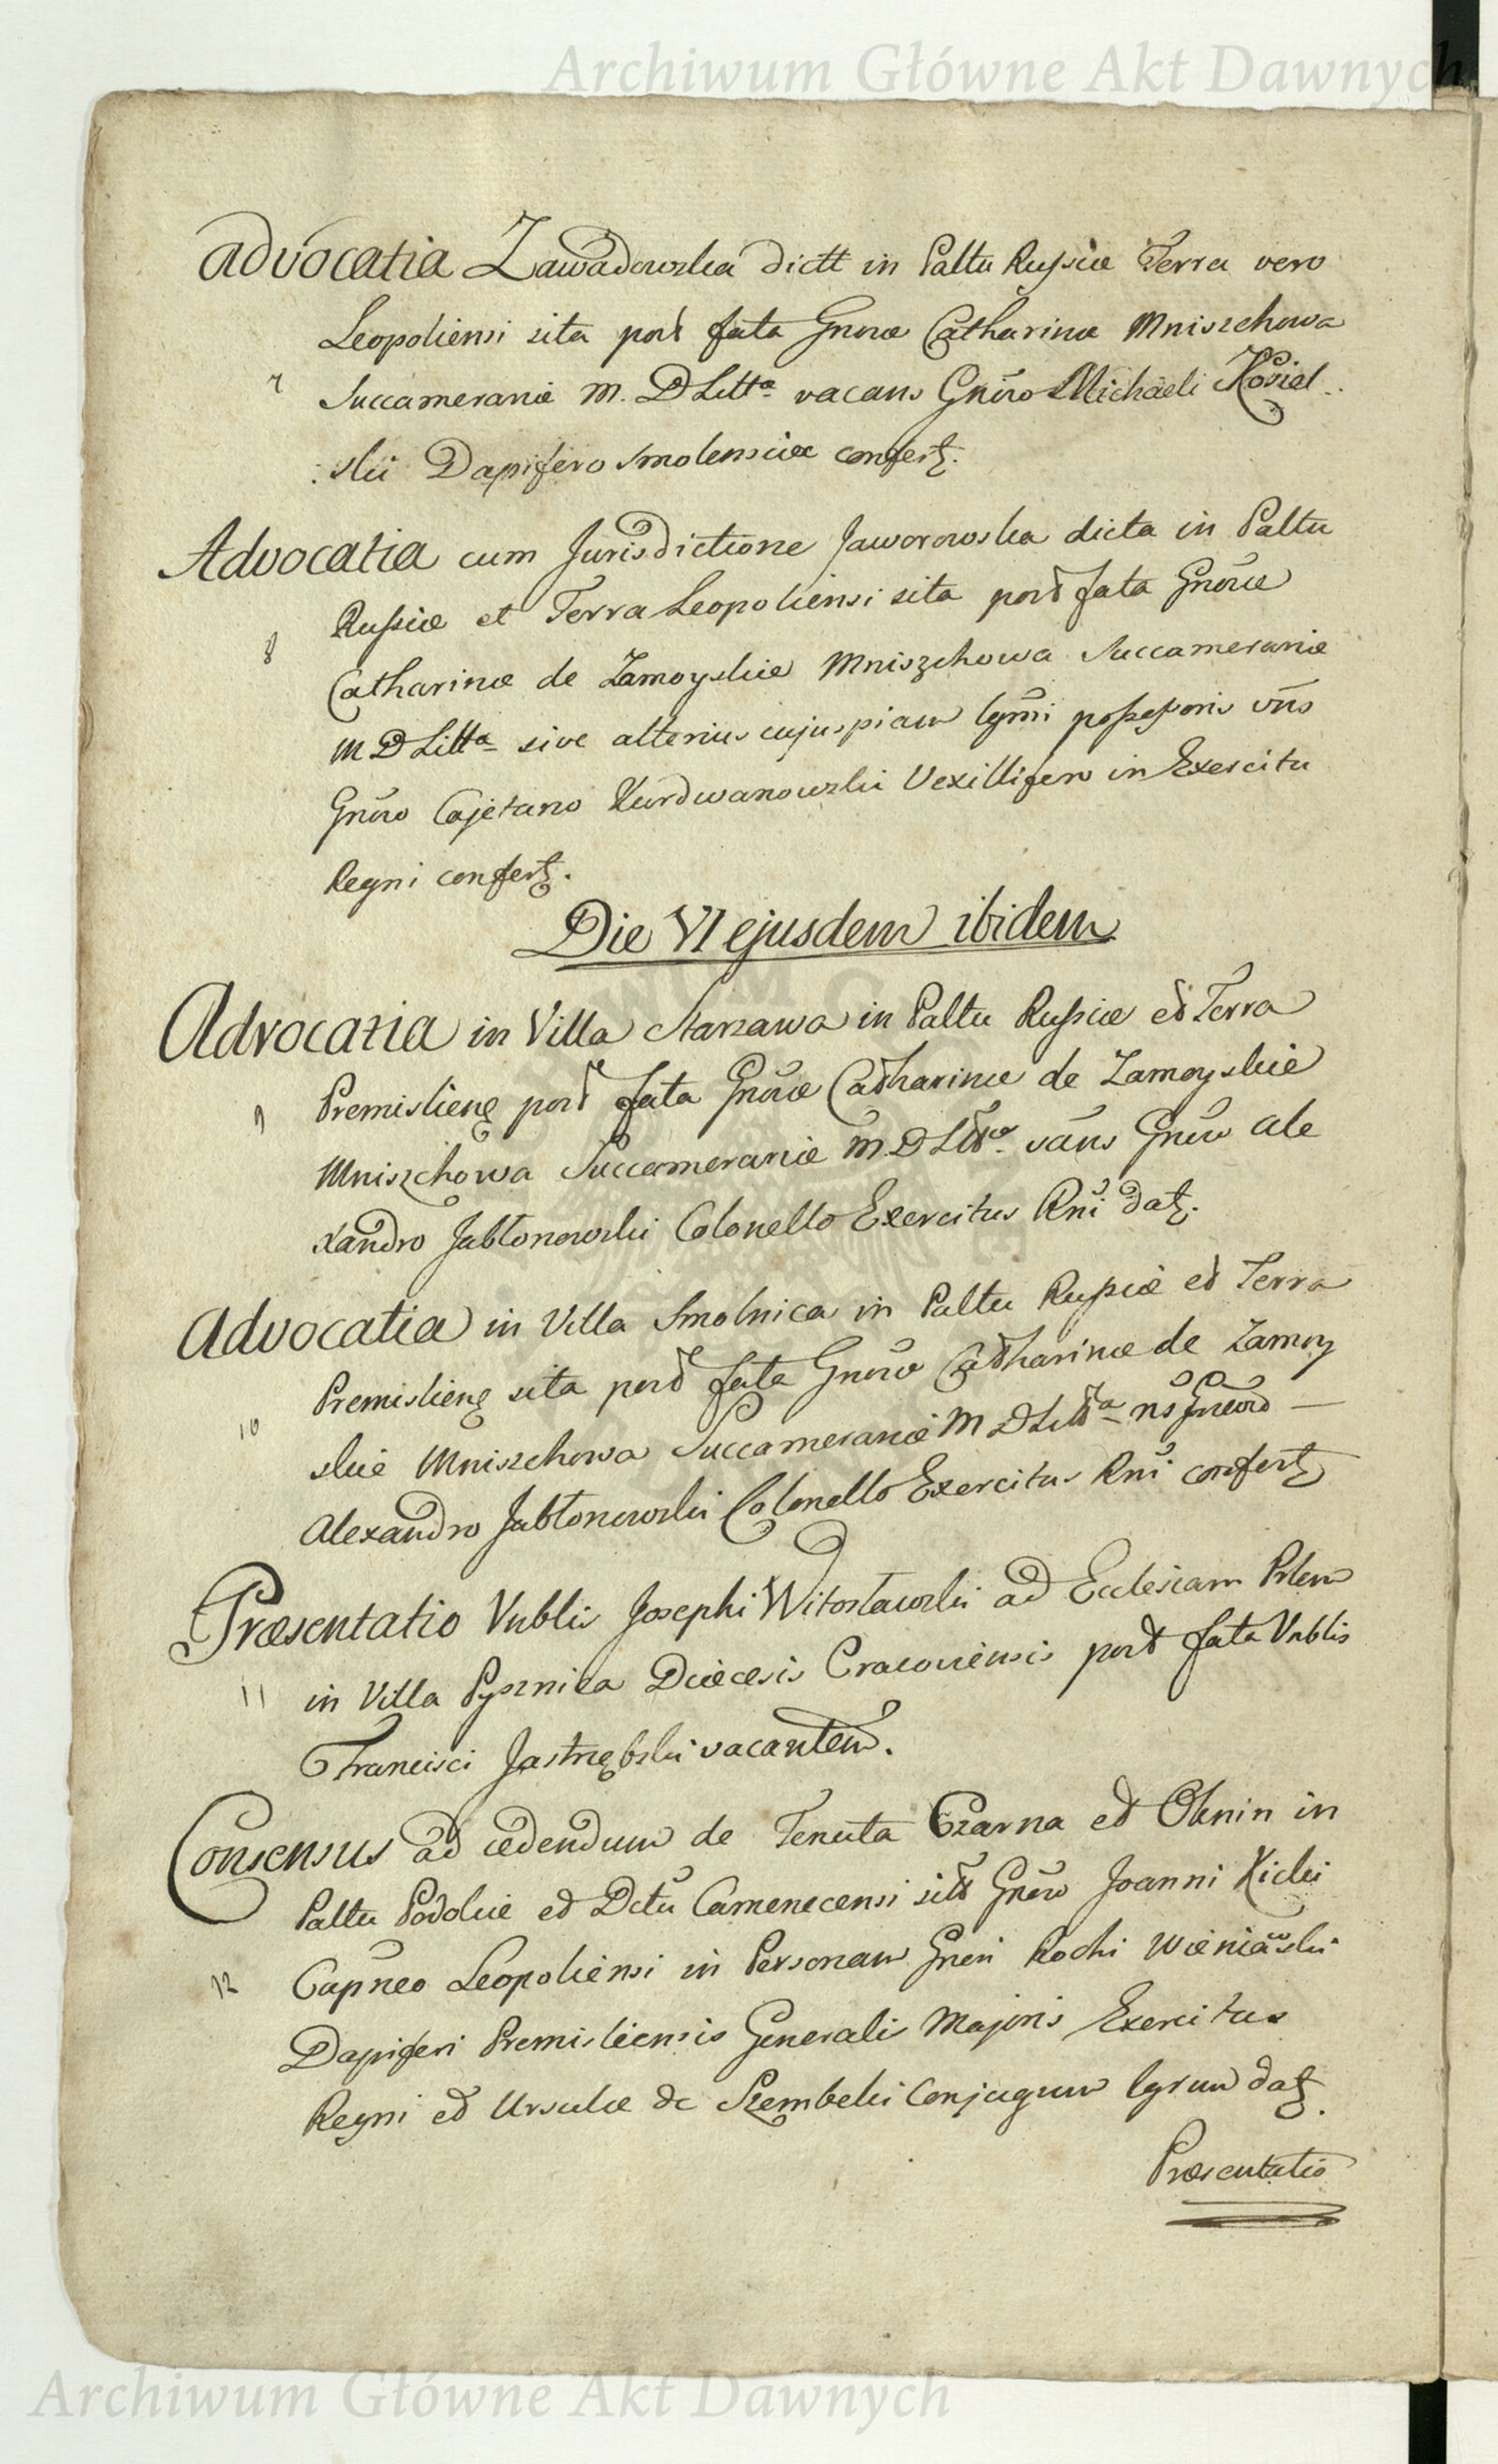 Archiwum Główne Akt Dawnych
Advocatia Zawadowska dictt in Paltu Russiæ Terra vero
Leopoliensi sita post fata Gnosæ Catharinæ Mniszchowa
7 Succameraniæ M. D Litta vacans Gnoso Michaeli Koziel
:skii Dapifero Smolensciæ confert.
Advocatia cum Jurisdictione Jaworowska dicta in Paltu
Russiæ et Terra Leopoliensi sita post fata Gnosæ
8 Catharinæ de Zamoyskie Mniszchowa Succameraniæ
M D Litta sive alterius cujuspiam lgmi possessoris vns
Gnoso Cajetano Kurdwanowski Vexillifero in Exercitu
Regni confert.
Die VI ejusdem ibidem
Advocatia in Villa Starzawa in Paltu Russiæ et Terra
9 Premislien post fata Gnosæ Catharinæ de Zamoyskie
Mniszchowa Succameraniæ M. D Litt vans Gnoso Ale
xandro Jabłonowski Colonello Exercitus Rni dat.
Advocatia in Villa Smolnica in Paltu Russiæ et Terra
Premislien sita post fata Gnosæ Catharinæ de Zamoy
10 skie Mniszchowa Succameraniæ M D Litta ns Gnoso
Alexandro Jabłonowski Colonello Exercitus Rni confert
Præsentatio Vnblis Josephi Witosławski ad Ecclesiam Prlem
11 in Villa Pysznica Diæcesis Cracoviensis post fata Vnblis
Francisci Jastrzębski vacantem.
Consensus ad cedendum de Tenuta Czarna et Olenin in
Paltu Podoliæ et Dctu Camenecensi sitt Gnoso Joanni Kicki
12 Capneo Leopoliensi in Personam Gnosi Rochi Wieniawski
Dapiferi Premisliensis Generalis Majoris Exercitus
Regni et Ursulæ de Szembeki Conjugum lgrum dat.
Præsentatio
Archiwum Główne Akt Dawnych